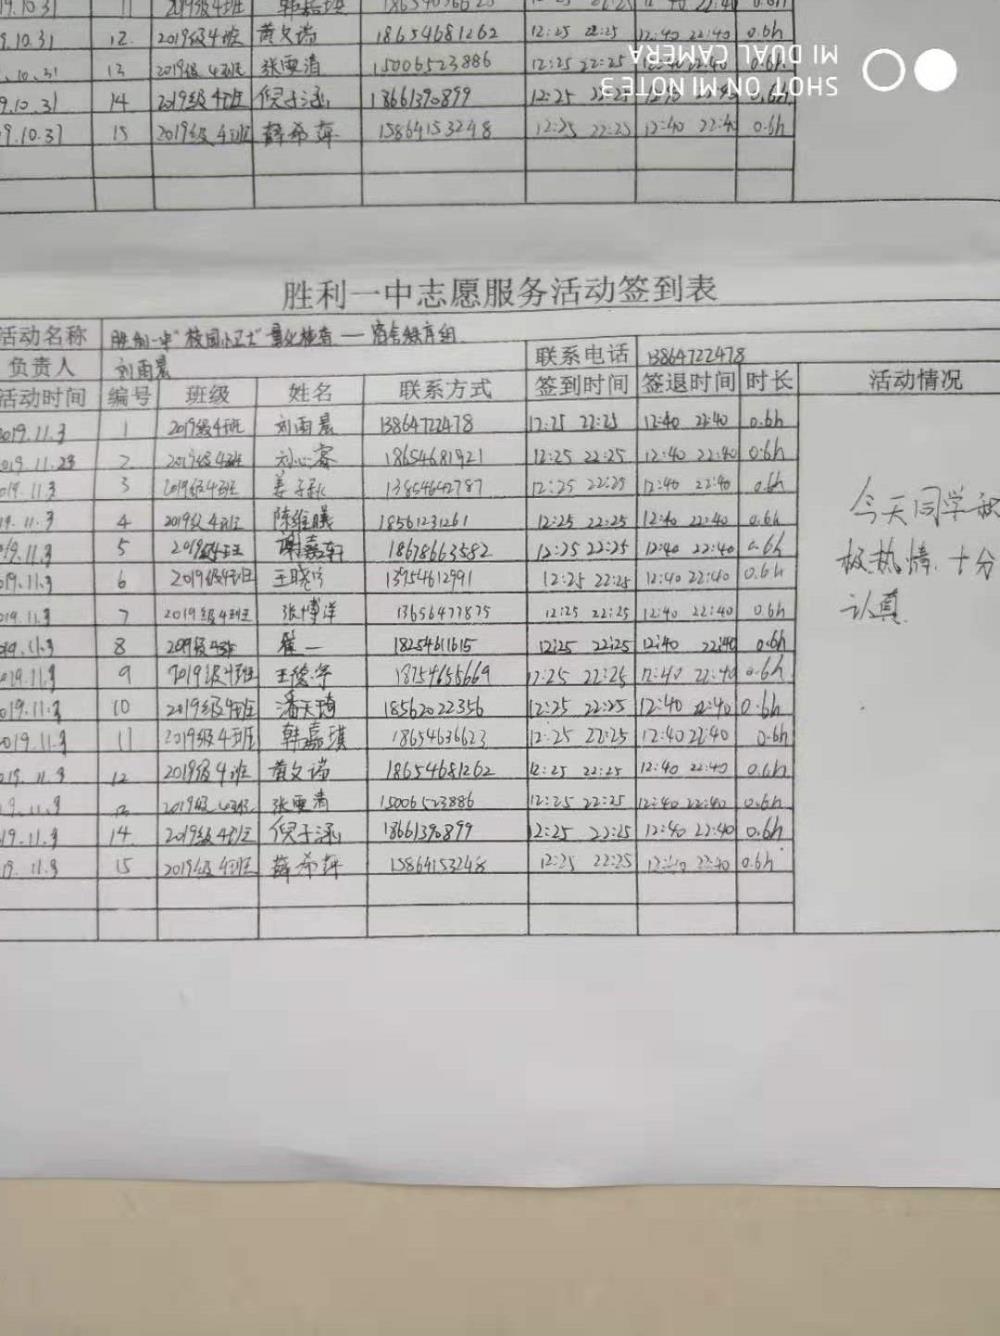 9.10.31 11 2019级4班
9.10.31 12 2019级4班 黄文诺 18654681262 12:25 22:25 12:40 22:40 0.6h
.10.31 13 2019级4班 张雯清 15006523886 12:25 22:25 12:40 22:40 0.6h
9.10.31 14 2019级4班 倪子涵 18661390899 12:25 22:25 12:40 22:40 0.6h
9.10.31 15 2019级4班 薛希萍 15864153248 12:25 22:25 12:40 22:40 0.6h
SHOT ON MI NOTE 3
MI DUAL CAMERA
胜利一中志愿服务活动签到表
活动名称 胜利一中"校园小卫士"量化检查——宿舍秩序组
负责人 刘雨晨 联系电话 13864722478
活动时间 编号 班级 姓名 联系方式 签到时间 签退时间 时长 活动情况
2019.11.3 1 2019级4班 刘雨晨 13864722478 12:25 22:25 12:40 22:40 0.6h
2019.11.23 2 2019级4班 刘心睿 18654681921 12:25 22:25 12:40 22:40 0.6h
019.11.3 3 2019级4班 姜子秋 13854642787 12:25 22:25 12:40 22:40 0.6h
19.11.3 4 2019级4班 陈维曦 18561231261 12:25 22:25 12:40 22:40 0.6h
019.11.3 5 2019级4班 谢嘉轩 18678663582 12:25 22:25 12:40 22:40 0.6h
019.11.3 6 2019级4班 13954612991 12:25 22:25 12:40 22:40 0.6h
019.11.3 7 2019级4班 张博洋 13656477875 12:25 22:25 12:40 22:40 0.6h
019.11.3 8 2019级4班 18254611615 12:25 22:25 12:40 22:40 0.6h
019.11.3 9 2019级4班 王俊宇 18754655669 12:25 22:25 12:40 22:40 0.6h
019.11.3 10 2019级4班 潘天琦 18562022356 12:25 22:25 12:40 22:40 0.6h
019.11.3 11 2019级4班 韩嘉琪 18654636623 12:25 22:25 12:40 22:40 0.6h
019.11.3 12 2019级4班 黄文诺 18654681262 12:25 22:25 12:40 22:40 0.6h
9.11.3 13 2019级4班 张雯清 15006523886 12:25 22:25 12:40 22:40 0.6h
19.11.3 14 2019级4班 倪子涵 18661390899 12:25 22:25 12:40 22:40 0.6h
19.11.3 15 2019级4班 薛希萍 15864153248 12:25 22:25 12:40 22:40 0.6h
今天同学积
极热情,十分
认真.